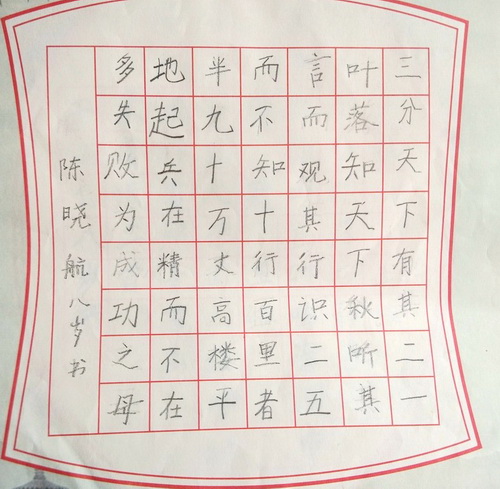 三分天下有其二一
叶落知天下秋听其
言而观其行识二五
而不知十行百里者
半九十万丈高楼平
地起兵在精而不在
多失败为成功之母
陈晓航八岁书